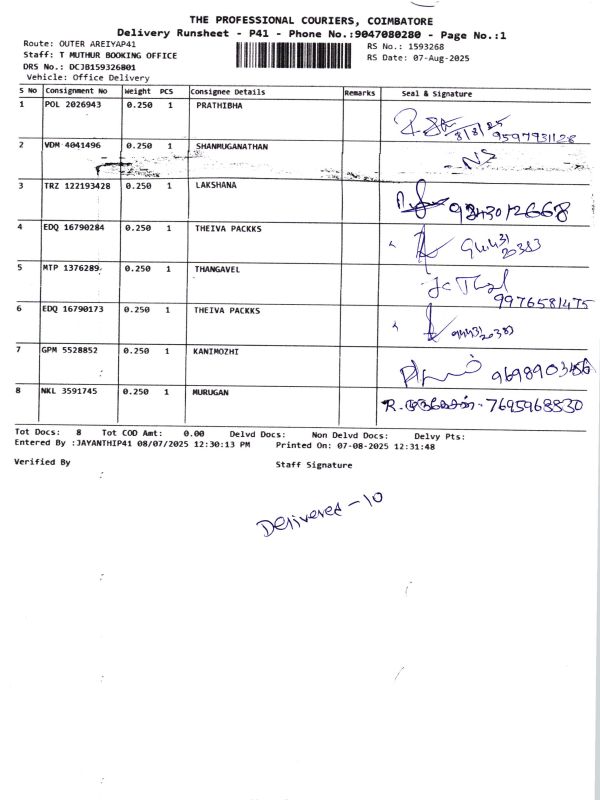 THE PROFESSIONAL COURIERS, COIMBATORE
Delivery Runsheet - P41 - Phone No.:9047080280 - Page No.:1
Route: OUTER AREIYAP41 RS No.: 1593268
Staff: T MUTHUR BOOKING OFFICE RS Date: 07-Aug-2025
DRS No.: DCJB159326801
Vehicle: Office Delivery
S No Consignment No Weight PCS Consignee Details Remarks Seal & Signature
1 POL 2026943 0.250 1 PRATHIBHA
8/8/25 9597931128
2 VDM 4041496 0.250 1 SHANMUGANATHAN
NS
3 TRZ 122193428 0.250 1 LAKSHANA
4 EDQ 16790284 0.250 1 THEIVA PACKKS
5 MTP 1376289 0.250 1 THANGAVEL
9976581475
6 EDQ 16790173 0.250 1 THEIVA PACKKS
7 GPM 5528852 0.250 1 KANIMOZHI
8 NKL 3591745 0.250 1 MURUGAN
7695968830
Tot Docs: 8 Tot COD Amt: 0.00 Delvd Docs: Non Delvd Docs: Delvy Pts:
Entered By :JAYANTHIP41 08/07/2025 12:30:13 PM Printed On: 07-08-2025 12:31:48
Verified By Staff Signature
Delivered - 10